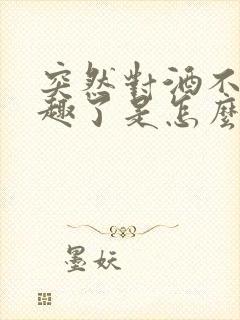 突然對酒不
趣了是怎麼
墨妖